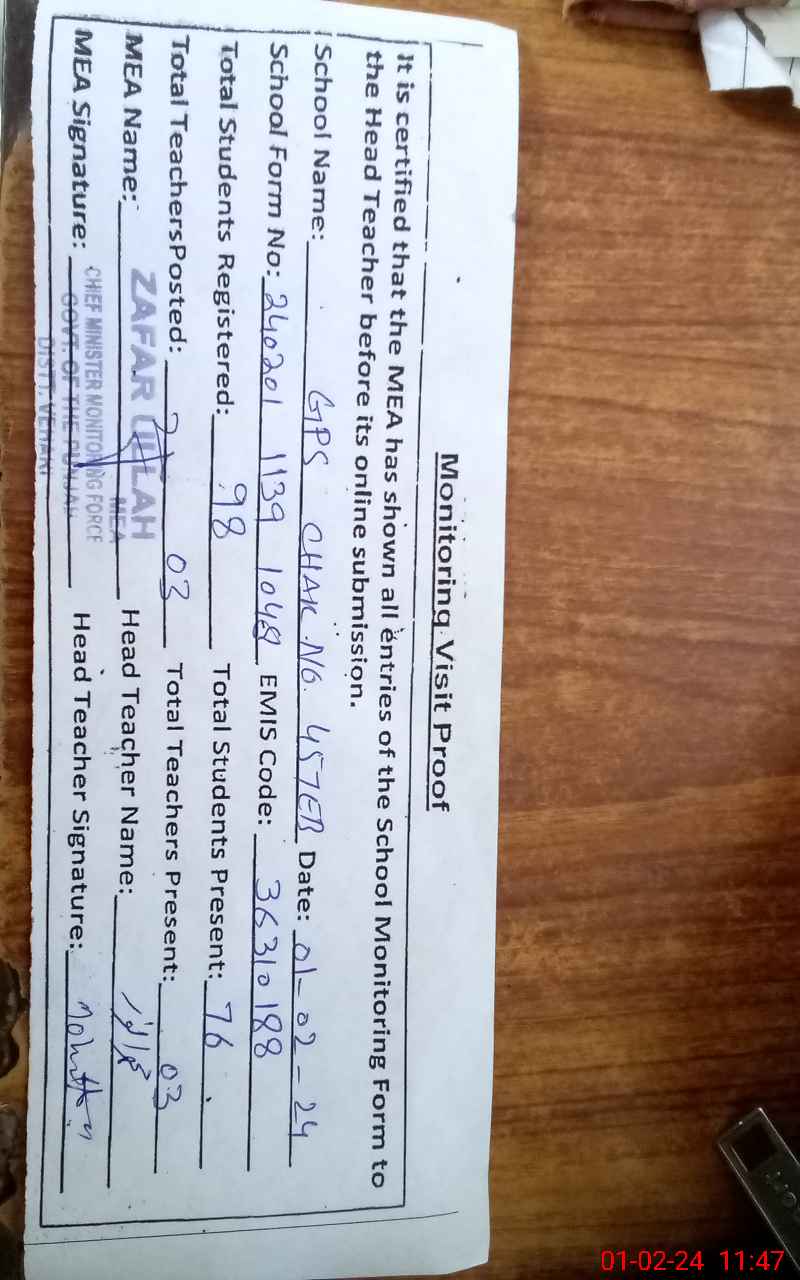 Monitoring Visit Proof
It is certified that the MEA has shown all entries of the School Monitoring Form to
the Head Teacher before its online submission.
School Name: GPS CHAK NO. 457EB Date: 01-02-24
School Form No: 240201 1139 1048 EMIS Code: 36310188
Total Students Registered: 98 Total Students Present: 76
Total TeachersPosted: 03 Total Teachers Present: 03
MEA Name: ZAFAR ULLAH Head Teacher Name:
MEA
MEA Signature: Head Teacher Signature:
CHIEF MINISTER MONITORING FORCE
GOVT. OF THE PUNJAB
DISTT. VEHARI
01-02-24 11:47